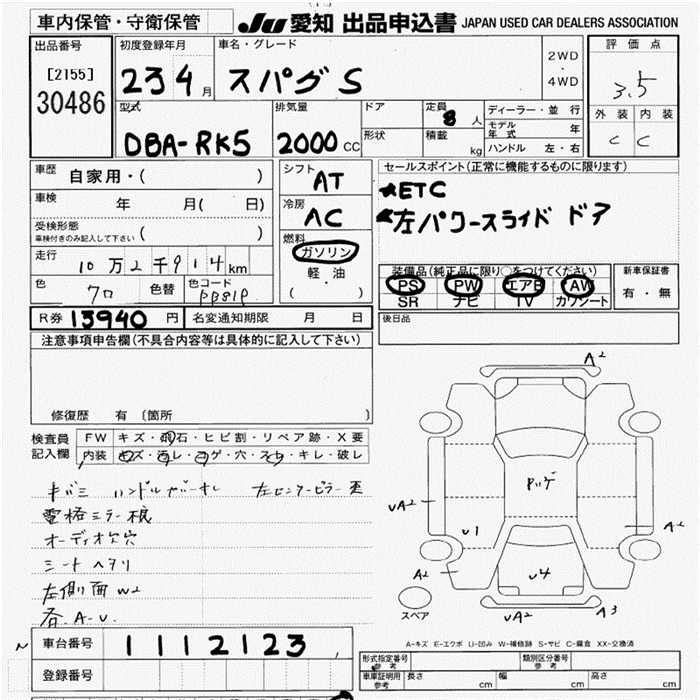 車内保管・守衛保管
JU 愛知 出品申込書 JAPAN USED CAR DEALERS ASSOCIATION
出品番号
[2155]
30486
初度登録年月
23 4 月
車名・グレード
スパグ S
2WD
・
4WD
評価点
3.5
外装 内装
C C
型式
DBA-RK5
排気量
2000 CC
ドア
形状
定員
8 人
積載
kg
ディーラー・並行
モデル年式 年
ハンドル 左・右
車歴 自家用・( )
車検 年 月( 日)
受検形態
車検付きのみ記入して下さい ( )
走行 10万2千914km
色 クロ 色替 色コード
シフト
AT
冷房
AC
燃料
ガソリン
軽・油
( ・ )
セールスポイント(正常に機能するものに限ります)
★ETC
★左パワースライド ドア
装備品(純正品に限り○をつけてください)
PS PW エアB AW
SR ナビ TV カワシート
新車保証書
有・無
R券 13940 円 名変通知期限 月 日
後日品
注意事項申告欄(不具合内容等は具体的に記入して下さい)
修復歴 有 〔箇所 〕
検査員
記入欄
FW キズ・飛石・ヒビ割・リペア跡・X要
内装 キズ・汚レ・コゲ・穴・スレ・キレ・破レ
キバミ ハンドルカバーナシ 左センターピラー歪
電格ミラー根
オーディオ欠穴
シートヘタリ
左側面 W2
各 A.U
A2
Pルゲ
UA2
U1
A2
A2
U4
UA2
A3
スペア
A-キズ E-エクボ U-凹み W-補修跡 S-サビ C-腐食 XX-交換済
車台番号 1112123
登録番号
形式指定番号
参考
類別区分番号
参考
車庫証明用
参考
長さ cm 幅 cm 高さ cm